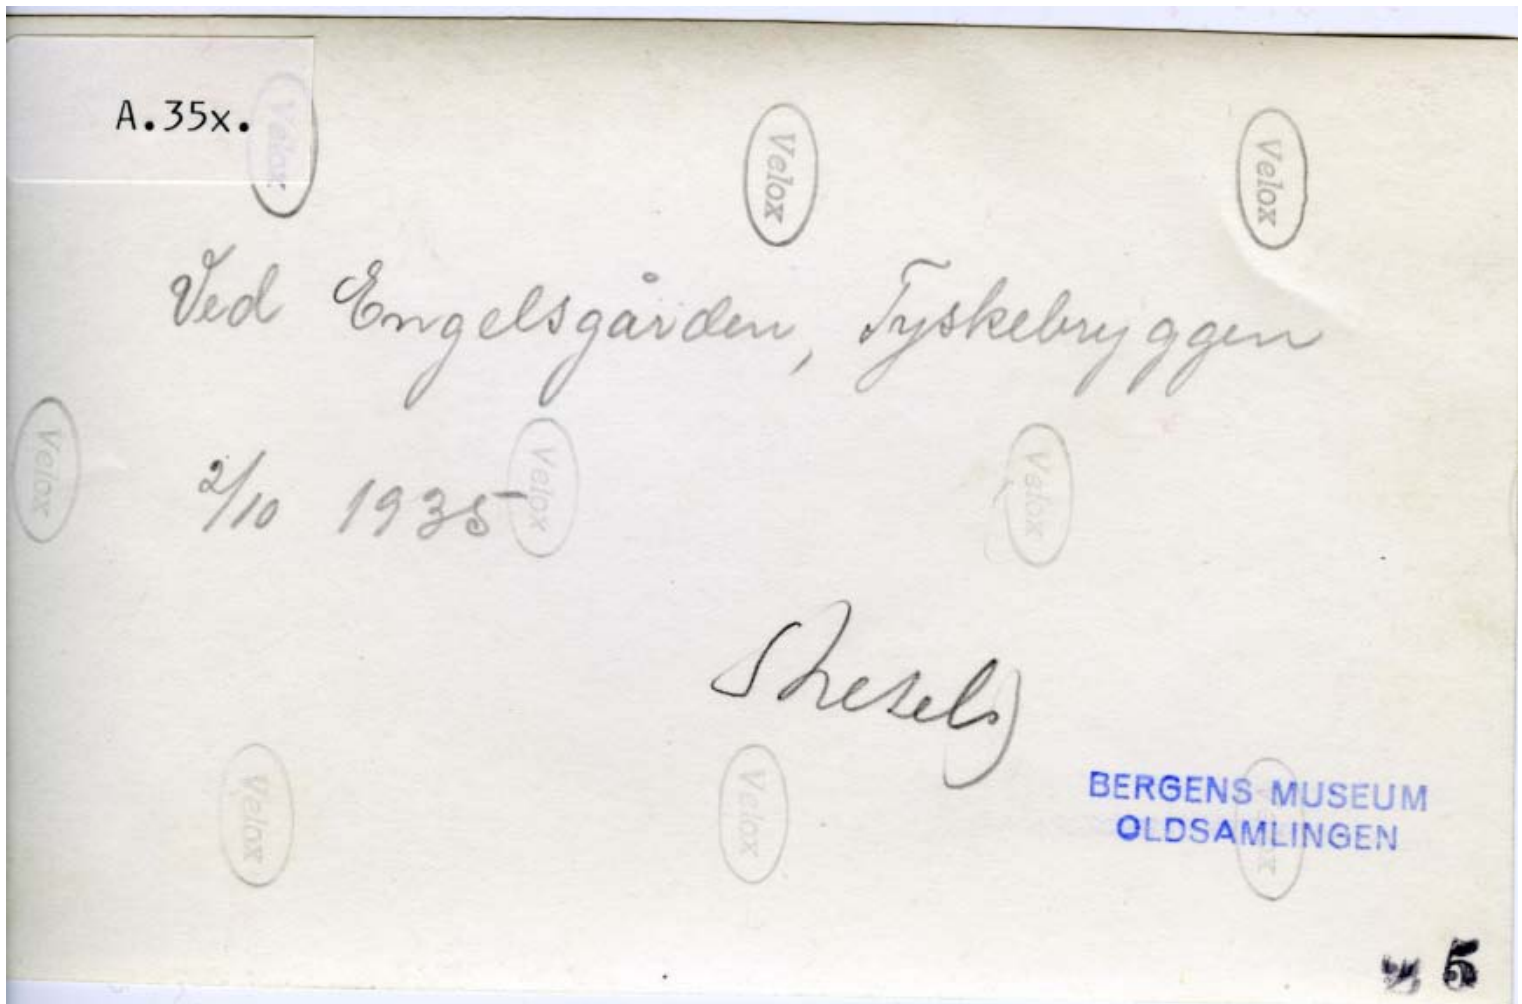 A.35x.
Velox Velox Velox
Ved Engelsgården, Tyskebryggen
Velox Velox Velox
2/10 1935
Velox Velox
BERGENS MUSEUM
OLDSAMLINGEN
5